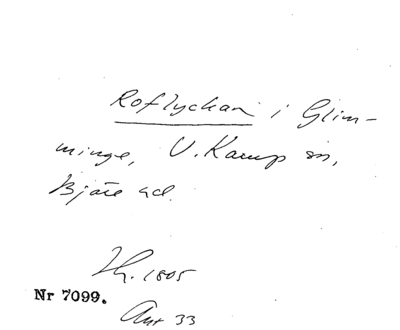 Roflyckan i Glim-
minge, V. Karup sn,
Bjäre hd.
1805
Nr 7099.
33